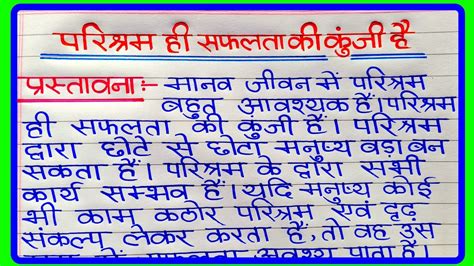 परिश्रम ही सफलता की कुंजी है
प्रस्तावना :- मानव जीवन में परिश्रम
बहुत आवश्यक हैं। परिश्रम
ही सफलता की कुंजी हैं। परिश्रम
द्वारा छोटे से छोटा मनुष्य बड़ा बन
सकता हैं। परिश्रम के द्वारा सभी
कार्य सम्भव हैं। यदि मनुष्य कोई
भी काम कठोर परिश्रम एवं दृढ़
संकल्प लेकर करता हैं, तो वह उस
काम में सफलता अवश्य पाता हैं।